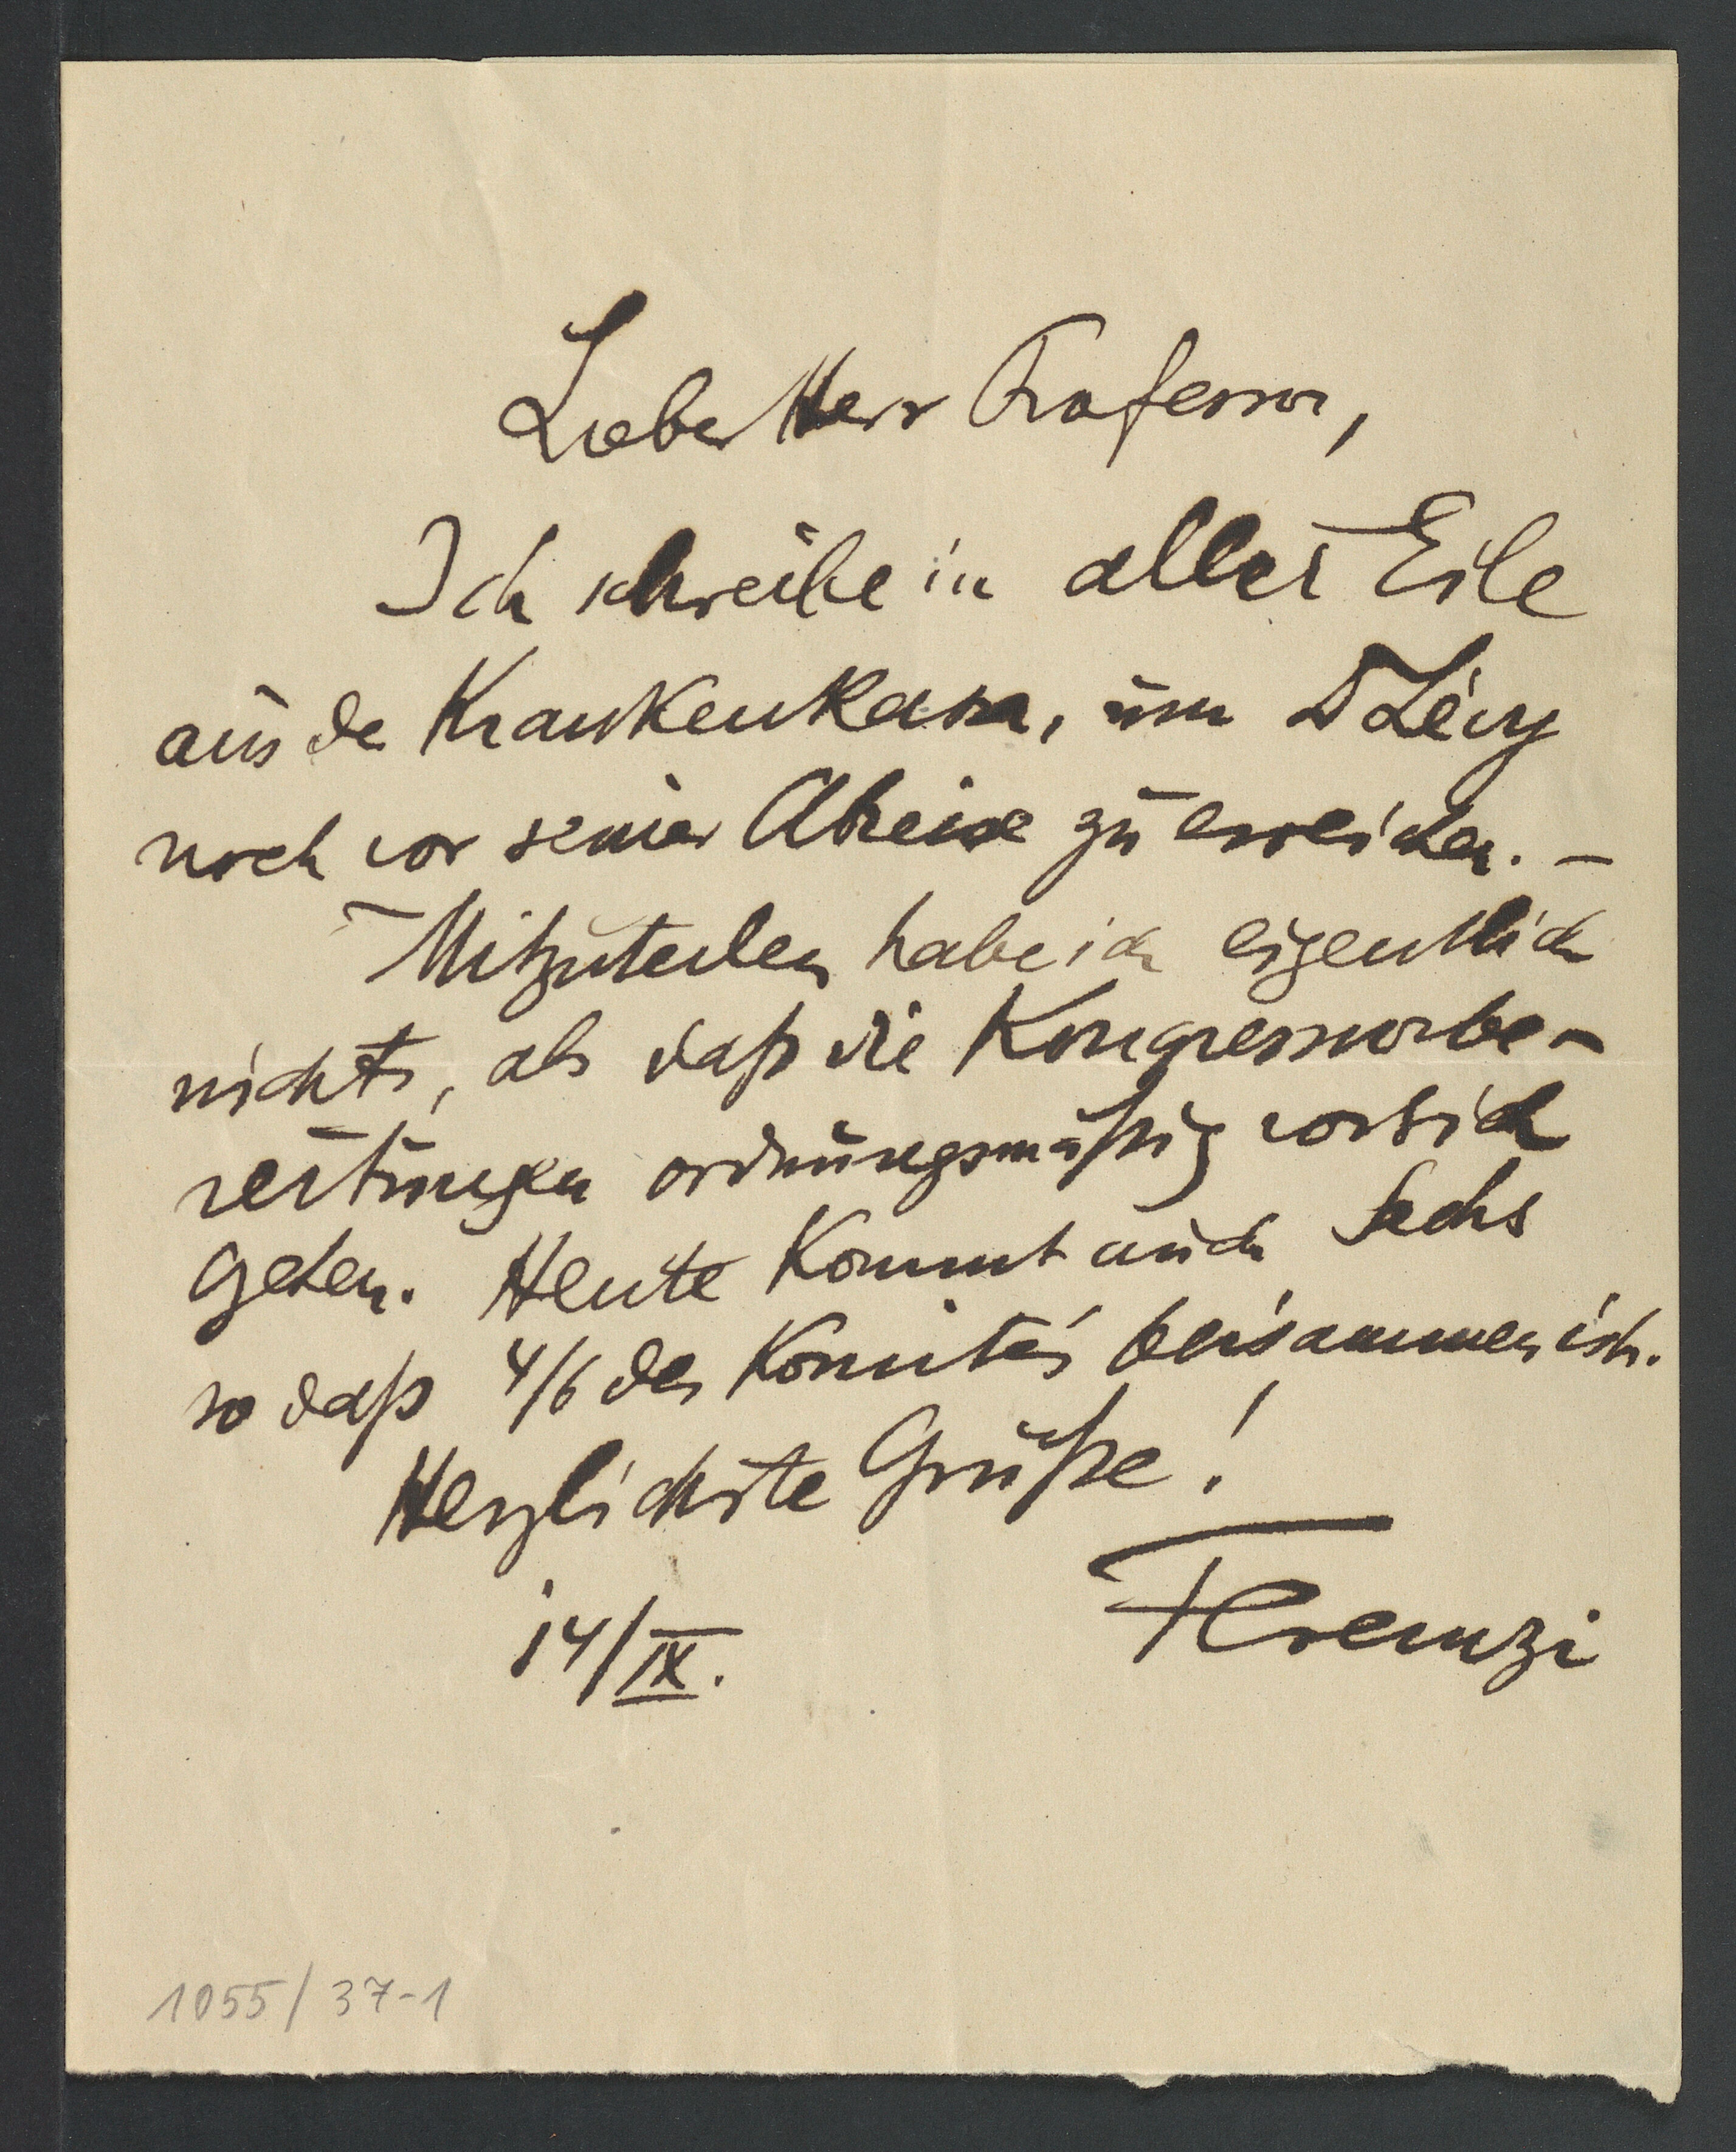 Lieber Herr Professor,
Ich schreibe in aller Eile
aus der Krankenkassa, um Dr Lévy
noch vor seiner Abreise zu erreichen. –
– Mitzuteilen habe ich eigentlich
nichts, als daß die Kongressvorbe-
reitungen ordnungsmäßig vor sich
gehen. Heute kommt auch Sachs
so daß 4/6 des Komités beisammen ist.
Herzlichste Grüße!
Ferenczi
14/IX.
1055/37-1